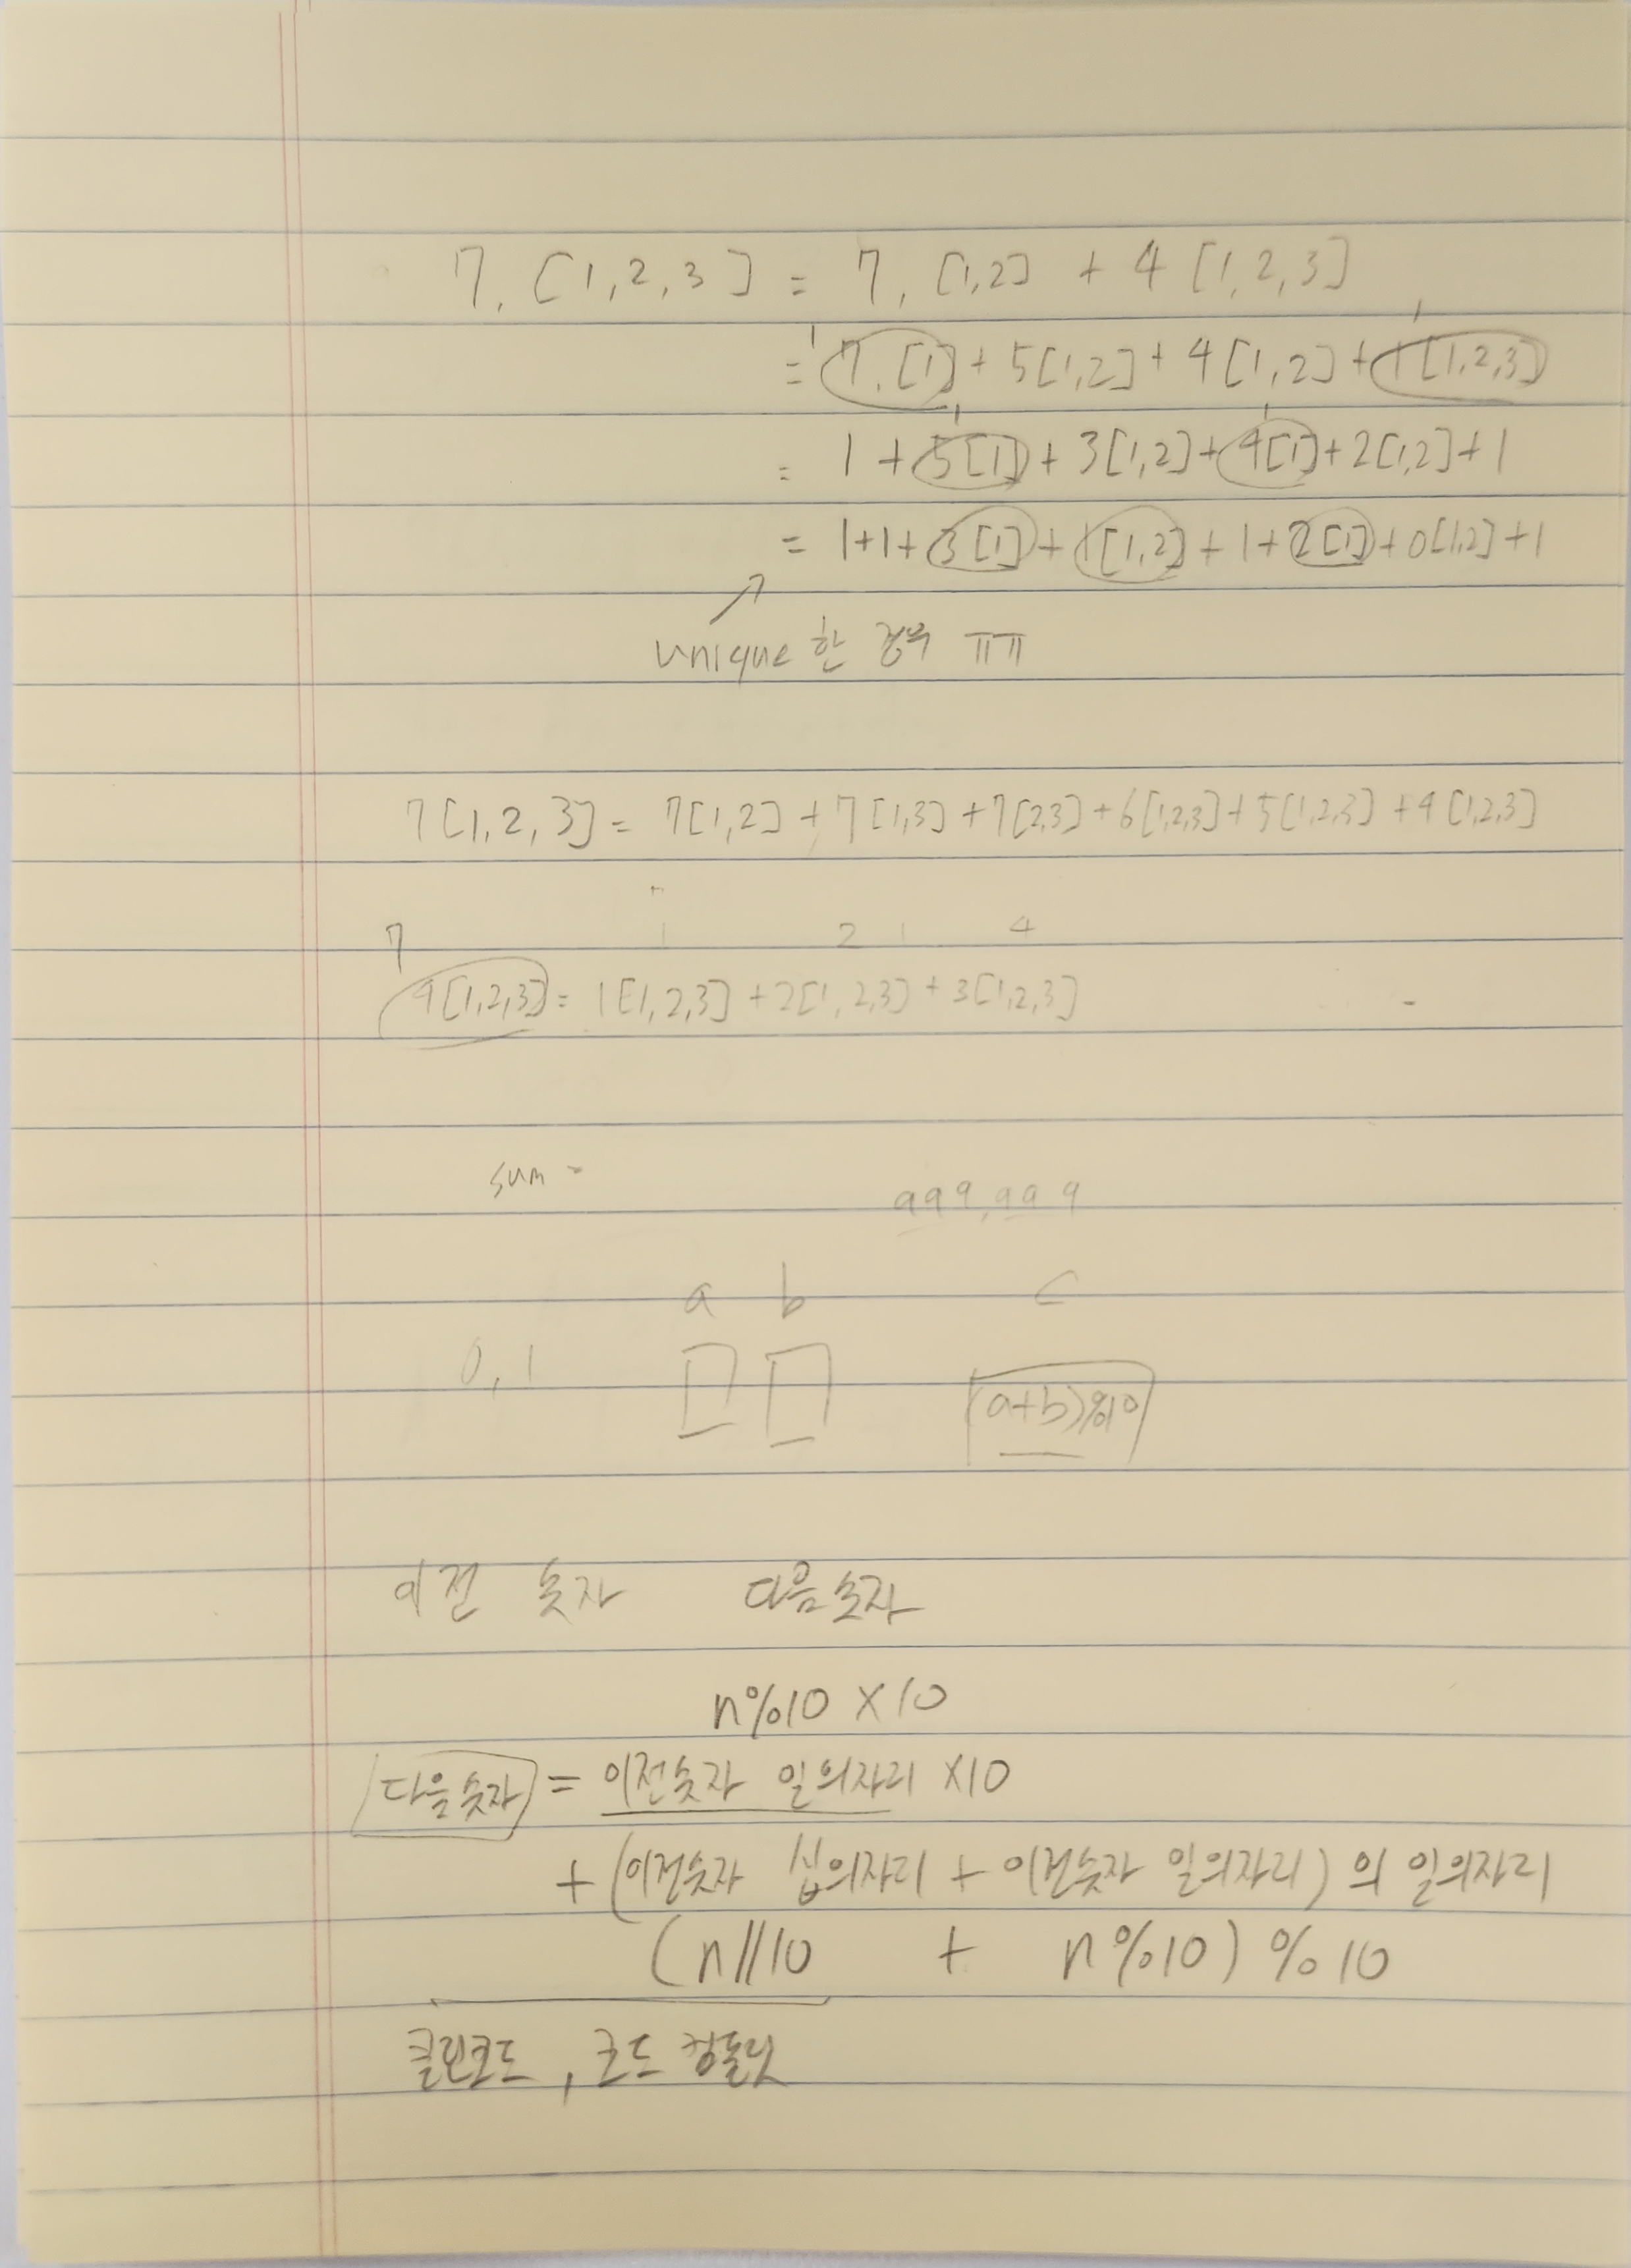 7, [1,2,3] = 7, [1,2] + 4 [1,2,3]
= 7,[1] + 5[1,2] + 4[1,2] + 1[1,2,3]
= 1 + 5[1] + 3[1,2] + 4[1] + 2[1,2] + 1
= 1+1+ 3[1] + 1[1,2] + 1 + 2[1] + 0[1,2] + 1
unique 한 경우 ㅠㅠ
7[1,2,3] = 7[1,2] + 7[1,3] + 7[2,3] + 6[1,2,3] + 5[1,2,3] + 4[1,2,3]
7 1 2 1 4
4[1,2,3] = 1[1,2,3] + 2[1,2,3] + 3[1,2,3]
sum =
999,999
a b c
0, 1 (a+b)%10
이전 숫자 다음숫자
n%10 × 10
다음숫자 = 이전숫자 일의자리 ×10
+ (이전숫자 십의자리 + 이전숫자 일의자리) 의 일의자리
(n//10 + n%10) % 10
클린코드, 코드 컴플릿